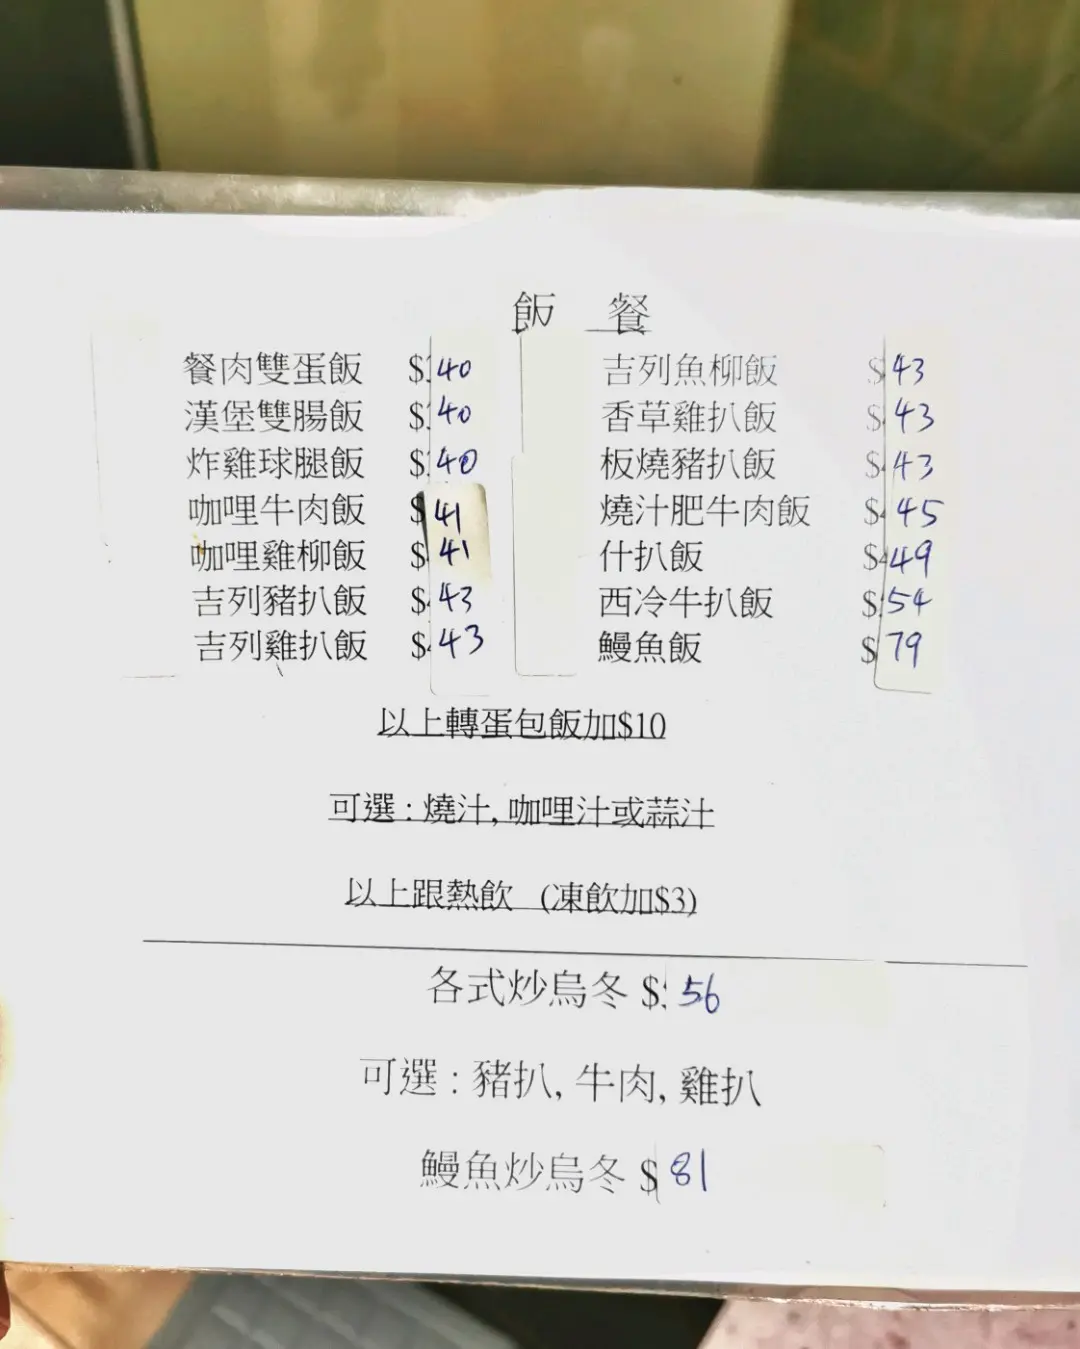 飯 餐
餐肉雙蛋飯 $40 吉列魚柳飯 $43
漢堡雙腸飯 $40 香草雞扒飯 $43
炸雞球腿飯 $40 板燒豬扒飯 $43
咖哩牛肉飯 $41 燒汁肥牛肉飯 $45
咖哩雞柳飯 $41 什扒飯 $49
吉列豬扒飯 $43 西冷牛扒飯 $54
吉列雞扒飯 $43 鰻魚飯 $79
以上轉蛋包飯加$10
可選 : 燒汁, 咖哩汁或蒜汁
以上跟熱飲 (凍飲加$3)
各式炒烏冬 $56
可選 : 豬扒, 牛肉, 雞扒
鰻魚炒烏冬 $81